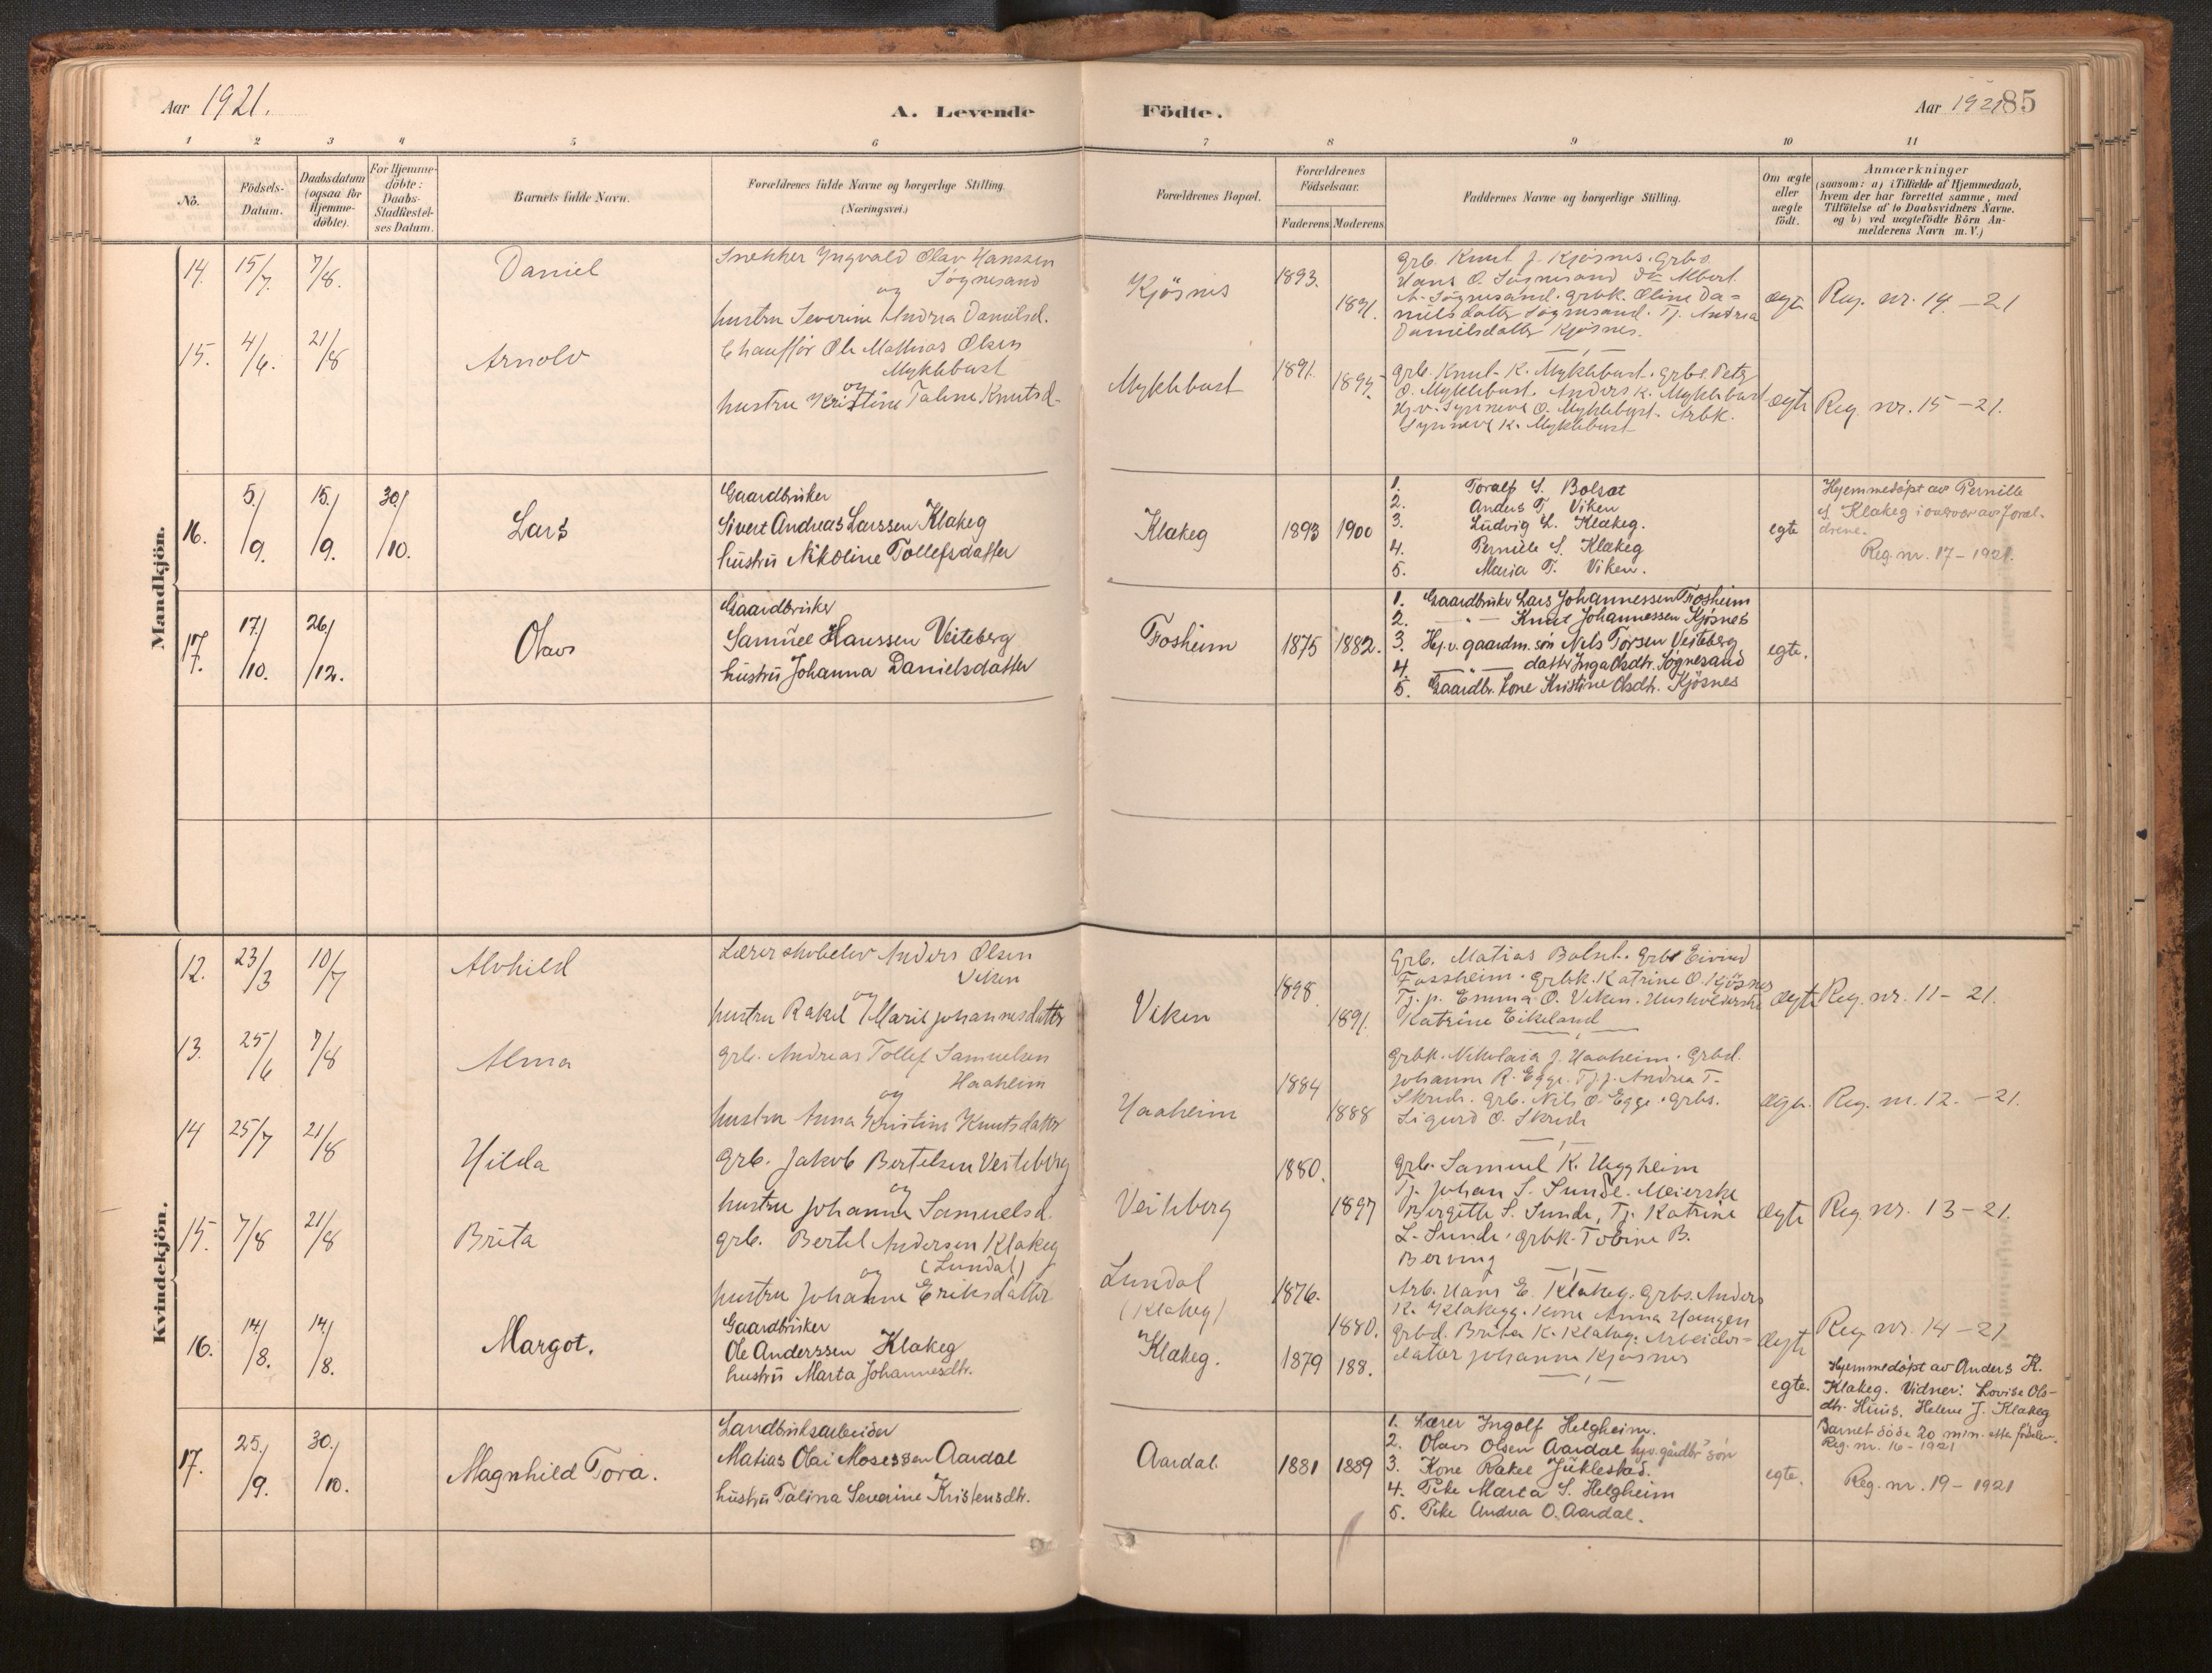 Aar 1921.
A. Levende Födte.
Aar 1921
85
1 2 3 4 5 6 7 8 9 10 11
No.
Födsels-Datum.
Daabsdatum (ogsaa for Hjemme-döbte).
For Hjemme-döbte: Daabs-Stadfæstel-ses Datum.
Barnets fulde Navn.
Forældrenes fulde Navne og borgerlige Stilling.
(Næringsvei.)
Forældrenes Bopæl.
Forældrenes Födselsaar.
Faderens. Moderens.
Faddernes Navne og borgerlige Stilling.
Om ægte eller uægte födt.
Anmærkninger
(saasom: a) i Tilfælde af Hjemmedaab,
hvem der har forrettet samme, med
Tilföielse af to Daabsvidners Navne.
og b) ved uægtefödte Börn An-
melderens Navn m. V.)
Mandkjön.
14. 15/7. 7/8. Daniel
Snekker Ingvald Olav Hanssen
Søgnesand
og
hustru Severine Andrea Danielsd.
Kjösnes
1893. 1891.
Grb. Knut J. Kjøsnes. Grbs.
Hans O. Søgnesand do Albert
A. Søgnesand. grbk. Oline Da=
nielsdatter Søgnesand. Tj. Andrea
Danielsdatter Kjøsnes.
ægte
Reg. nr. 14 - 21
15. 4/6. 21/8 Arnolv
Chauffør Ole Mathias Olsen
Myklebust
og
hustru Kristine Taline Knutsd.
Myklebust
1891.
Grb. Knut K. Myklebust. grbs. Peter
O. Myklebust. Anders K. Myklebust
Hj.v. Synneve O. Myklebust. Arbk.
Synneve K. Myklebust
ægte
Reg. nr. 15 - 21.
16. 5./9. 15./9. 30./10. Lars
Gaardbruker
Sivert Andreas Larssen Klakeg
hustru Nikoline Tollefsdatter
Klakeg
1893 1900
1. Toralf S. Bolsæt
2. Anders T. Viken
3. Ludvig L. Klakeg.
4. Pernille S. Klakeg
5. Maria T. Viken.
egte
Hjemmedøpt av Pernille
S. Klakeg i nærvær av foræl-
drene.
Reg. nr. 17 - 1921.
17. 17./10. 26./12. Olav
Gaardbruker
Samuel Hanssen Veiteberg
hustru Johanna Danielsdatter
Fosheim
1875 1882.
1. Gaardbruker Lars Johannessen Fosheim
2. — " — Knut Johannessen Kjøsnes
3. Hj.v. gaardm. søn Nils Torsen Veiteberg
4. — " — datter Inga Olsdtr. Søgnesand
5. Gaardbr. kone Kristine Olsdtr. Kjøsnes
egte.
Kvindekjön.
12. 23/3 10/7 Alvhild
Lærerskoleelev Anders Olsen
Viken
og
hustru Rakel Marie Johannesdatter
Viken
1898. 1891.
Grb. Matias Bolset. Grbs Eivind
Fossheim. Grbk. Katrine O. Kjøsnes
Tj. p. Emma O. Viken. Husholderske
Katrine Eikeland
ægte
Reg. nr. 11 - 21.
13. 25/6 7/8 Alma
Grb. Andreas Tollef Samuelsen
Haaheim
og
hustru Anna Kristine Knutsdatter
Haaheim
1884 1888
Grbk. Nikolaia J. Haaheim. Grbd.
Johanne R. Egge. Tj. p. Andrea T.
Skrede. Grb. Nils O. Egge. Grbs.
Sigurd O. Skrede
ægte.
Reg. nr. 12. - 21.
14 25/7 21/8 Hilda
Grb. Jakob Bertelsen Veiteberg
og
hustru Johanne Samuelsd.
Veiteberg
1880. 1897
Grb. Samuel K. Heggheim
Tj. Johan S. Sunde. Meierske
Bergitte S. Sunde, Tj. Katrine
L. Sunde. Grbk. Tobine B.
Berung
ægte
Reg. nr. 13 - 21.
15. 7/8 21/8 Brita
grb. Bertel Andersen Klakeg
(Lundal)
og
hustru Johanne Eriksdatter
Lundal
(Klakeg)
1876. 1880.
Arb. Hans E. Klakeg. Grbs. Anders
K. Klakegg. Kone Anna Haugen
Grbd. Brita K. Klakeg. Arbeider=
datter Johanne Kjøsnes
ægte
Reg. nr. 14 - 21
16. 14./8. 14./8. Margot.
Gaardbruker
Ole Anderssen Klakeg
hustru Marta Johannesdtr.
Klakeg.
1879 188.
egte.
Hjemmedøpt av Anders K.
Klakeg. Vidner: Lovise Ols-
dtr. Huus, Helene J. Klakeg
Barnet døde 20 min. efter fødselen.
Reg. nr. 16 - 1921
17. 25./9. 30./10. Magnhild Tora.
Landbruksarbeider
Matias Olai Mosessen Aardal
hustru Talina Severine Kristensdtr.
Aardal
1881 1889
1. Lærer Ingolf Helgheim.
2. Olavs Olsen Aardal hjv. gårdbr. søn
3. Kone Rakel Jukkestad.
4. Pike Marta S. Helgheim
5. Pike Andrea O. Aardal.
egte.
Reg. nr. 19 - 1921